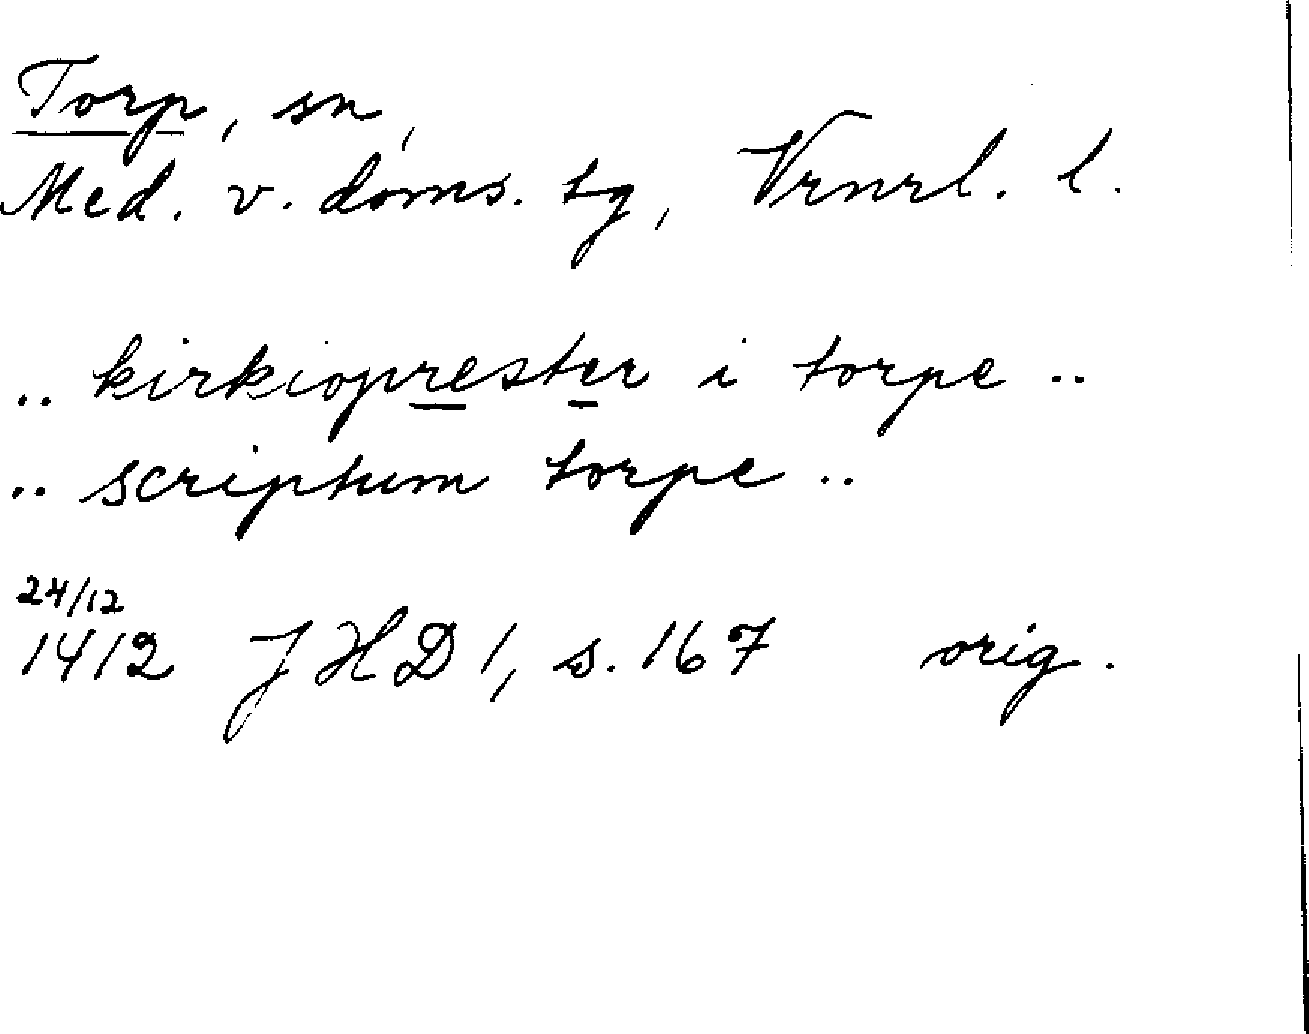 Torp, sn,
Med. v. doms. tg, Vrnrl. l.
.. kirkioprester i torpe ..
.. scriptum torpe ..
24/12
1412 JHD 1, s. 167 orig.